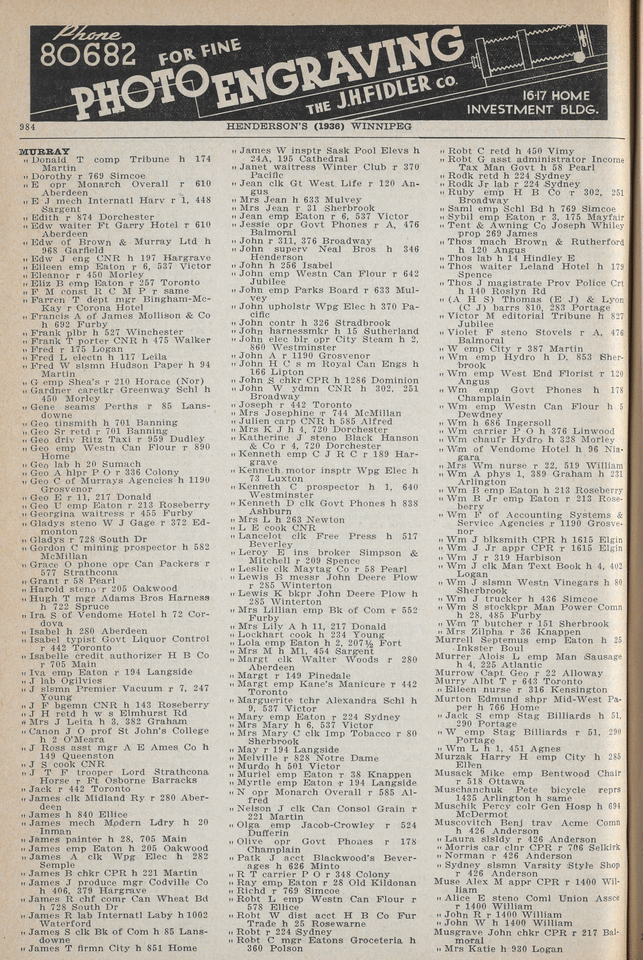 Phone
80682
FOR FINE
PHOTO ENGRAVING
THE J.H. FIDLER CO.
16-17 HOME
INVESTMENT BLDG.
984
HENDERSON'S (1936) WINNIPEG
MURRAY
" Donald T comp Tribune h 174
Martin
" Dorothy r 769 Simcoe
" E opr Monarch Overall r 610
Aberdeen
" E J mech Internatl Harv r 1, 448
Sargent
" Edith r 874 Dorchester
" Edw waiter Ft Garry Hotel r 610
Aberdeen
" Edw of Brown & Murray Ltd h
968 Garfield
" Edw J eng CNR h 197 Hargrave
" Eileen emp Eaton r 6, 537 Victor
" Eleanor r 450 Morley
" Eliz B emp Eaton r 257 Toronto
" F M const R C M P r same
" Farren T dept mgr Bingham-Mc-
Kay r Corona Hotel
" Francis A of James Mollison & Co
h 692 Furby
" Frank plbr h 527 Winchester
" Frank T porter CNR h 475 Walker
" Fred r 175 Logan
" Fred L electn h 117 Leila
" Fred W slsmn Hudson Paper h 94
Martin
" G emp Shea's r 210 Horace (Nor)
" Gardner caretkr Greenway Schl h
450 Morley
" Gene seams Perths r 85 Lans-
downe
" Geo tinsmith h 701 Banning
" Geo Sr retd r 701 Banning
" Geo driv Ritz Taxi r 959 Dudley
" Geo emp Westn Can Flour r 890
Home
" Geo lab h 20 Sumach
" Geo A hlpr P O r 336 Colony
" Geo C of Murrays Agencies h 1190
Grosvenor
" Geo E r 11, 217 Donald
" Geo U emp Eaton r 213 Roseberry
" Georgina waitress r 455 Furby
" Gladys steno W J Gage r 372 Ed-
monton
" Gladys r 728 South Dr
" Gordon C mining prospector h 582
McMillan
" Grace O phone opr Can Packers r
577 Strathcona
" Grant r 58 Pearl
" Harold steno r 205 Oakwood
" Hugh T mgr Adams Bros Harness
h 722 Spruce
" Ira S of Vendome Hotel h 72 Cor-
dova
" Isabel h 280 Aberdeen
" Isabel typist Govt Liquor Control
r 442 Toronto
" Isabelle credit authorizer H B Co
r 705 Main
" Iva emp Eaton r 194 Langside
" J lab Ogilvies
" J slsmn Premier Vacuum r 7, 247
Young
" J F bgemn CNR h 143 Roseberry
" J H retd h w s Elmhurst Rd
" Mrs J Leita h 3, 382 Graham
" Canon J O prof St John's College
h 2 O'Meara
" J Ross asst mgr A E Ames Co h
149 Queenston
" J S cook CNR
" J T F trooper Lord Strathcona
Horse r Ft Osborne Barracks
" Jack r 442 Toronto
" James clk Midland Ry r 280 Aber-
deen
" James h 840 Ellice
" James mech Modern Ldry h 20
Inman
" James painter h 28, 705 Main
" James emp Eaton h 205 Oakwood
" James A clk Wpg Elec h 282
Semple
" James B chkr CPR h 221 Martin
" James J produce mgr Codville Co
h 406, 379 Hargrave
" James R chf comr Can Wheat Bd
h 728 South Dr
" James R lab Internatl Laby h 1002
Waterford
" James S clk Bk of Com h 85 Lans-
downe
" James T firmn City h 851 Home
" James W inspr Sask Pool Elevs h
24A, 195 Cathedral
" Janet waitress Winter Club r 370
Pacific
" Jean clk Gt West Life r 120 An-
gus
" Mrs Jean h 633 Mulvey
" Mrs Jean r 31 Sherbrook
" Jean emp Eaton r 6, 537 Victor
" Jessie opr Govt Phones r A, 476
Balmoral
" John r 311, 376 Broadway
" John superv Neal Bros h 346
Henderson
" John h 256 Isabel
" John emp Westn Can Flour r 642
Jubilee
" John emp Parks Board r 633 Mul-
vey
" John upholstr Wpg Elec h 370 Pa-
cific
" John contr h 326 Stradbrook
" John harnessmkr h 15 Sutherland
" John elec blr opr City Steam h 2,
860 Westminster
" John A r 1190 Grosvenor
" John H C s m Royal Can Engs h
166 Lipton
" John S chkr CPR h 1286 Dominion
" John W ydmn CNR h 302, 251
Broadway
" Joseph r 442 Toronto
" Mrs Josephine r 744 McMillan
" Julien carp CNR h 585 Alfred
" Mrs K J h 4, 720 Dorchester
" Katherine J steno Black Hanson
& Co r 4, 720 Dorchester
" Kenneth emp C J R C r 189 Har-
grave
" Kenneth motor insptr Wpg Elec h
73 Luxton
" Kenneth C prospector h 1, 640
Westminster
" Kenneth D clk Govt Phones h 838
Ashburn
" Mrs L h 263 Newton
" L E cook CNR
" Lancelot clk Free Press h 517
Beverley
" Leroy E ins broker Simpson &
Mitchell r 209 Spence
" Leslie clk Maytag Co r 58 Pearl
" Lewis B messr John Deere Plow
r 285 Winterton
" Lewis K bkpr John Deere Plow h
285 Winterton
" Mrs Lillian emp Bk of Com r 552
Furby
" Mrs Lily A h 11, 217 Donald
" Lockhart cook h 234 Young
" Lola emp Eaton h 2, 207½ Fort
" Mrs M h M1, 454 Sargent
" Margt clk Walter Woods r 280
Aberdeen
" Margt r 149 Pinedale
" Margt emp Kane's Manicure r 442
Toronto
" Marguerite tchr Alexandra Schl h
9, 537 Victor
" Mary emp Eaton r 224 Sydney
" Mrs Mary h 6, 537 Victor
" Mrs Mary C clk Imp Tobacco r 80
Sherbrook
" May r 194 Langside
" Melville r 828 Notre Dame
" Murdo h 501 Victor
" Muriel emp Eaton r 38 Knappen
" Myrtle emp Eaton r 194 Langside
" N opr Monarch Overall r 585 Al-
fred
" Nelson J clk Can Consol Grain r
221 Martin
" Olga emp Jacob-Crowley r 524
Dufferin
" Olive opr Govt Phones r 178
Champlain
" Patk J acct Blackwood's Bever-
ages h 626 Minto
" R T carrier P O r 348 Colony
" Ray emp Eaton r 28 Old Kildonan
" Richd r 769 Simcoe
" Robt L emp Westn Can Flour r
578 Ellice
" Robt W dist acct H B Co Fur
Trade h 25 Rosewarne
" Robt r 224 Sydney
" Robt C mgr Eatons Groceteria h
360 Polson
" Robt C retd h 450 Vimy
" Robt G asst administrator Income
Tax Man Govt h 58 Pearl
" Rodk retd h 224 Sydney
" Rodk Jr lab r 224 Sydney
" Ruby emp H B Co r 302, 251
Broadway
" Saml emp Schl Bd h 769 Simcoe
" Sybil emp Eaton r 3, 175 Mayfair
" Tent & Awning Co Joseph Whiley
prop 269 James
" Thos mach Brown & Rutherford
h 120 Angus
" Thos lab h 14 Hindley E
" Thos waiter Leland Hotel h 179
Spence
" Thos J magistrate Prov Police Crt
h 140 Roslyn Rd
" (A H S) Thomas (E J) & Lyon
(C J) barrs 810, 283 Portage
" Victor M editorial Tribune h 827
Jubilee
" Violet F steno Stovels r A, 476
Balmoral
" W emp City r 387 Martin
" Wm emp Hydro h D, 853 Sher-
brook
" Wm emp West End Florist r 120
Angus
" Wm emp Govt Phones h 178
Champlain
" Wm emp Westn Can Flour h 5
Dewdney
" Wm h 686 Ingersoll
" Wm carrier P O h 376 Linwood
" Wm chaufr Hydro h 328 Morley
" Wm of Vendome Hotel h 96 Nia-
gara
" Mrs Wm nurse r 22, 519 William
" Wm A phys 1, 389 Graham h 231
Arlington
" Wm B emp Eaton h 213 Roseberry
" Wm B Jr emp Eaton r 213 Rose-
berry
" Wm F of Accounting Systems &
Service Agencies r 1190 Grosve-
nor
" Wm J blksmith CPR h 1615 Elgin
" Wm J Jr appr CPR r 1615 Elgin
" Wm J r 519 Harbison
" Wm J clk Man Text Book h 4, 402
Logan
" Wm J slsmn Westn Vinegars h 80
Sherbrook
" Wm J trucker h 436 Simcoe
" Wm S stockkpr Man Power Comn
h 28, 485 Furby
" Wm T butcher r 151 Sherbrook
" Mrs Zilpha r 36 Knappen
Murrell Septemus emp Eaton h 25
Inkster Boul
Murrer Alois L emp Man Sausage
h 4, 225 Atlantic
Murrow Capt Geo r 22 Alloway
Murry Albt T r 643 Toronto
" Eileen nurse r 316 Kensington
Murton Edmund shpr Mid-West Pa-
per h 766 Home
" Jack S emp Stag Billiards h 51,
290 Portage
" W emp Stag Billiards r 51, 290
Portage
" Wm L h 1, 451 Agnes
Murzak Harry H emp City h 285
Ellen
Musack Mike emp Bentwood Chair
r 518 Ottawa
Muschanchuk Pete bicycle reprs
1435 Arlington h same
Muschik Percy color Gen Hosp h 694
McDermot
Muscovitch Benj trav Acme Comn
h 426 Anderson
" Laura slsldy r 426 Anderson
" Morris car clnr CPR r 706 Selkirk
" Norman r 426 Anderson
" Sydney slsmn Varsity Style Shop
r 426 Anderson
Muse Alex M appr CPR r 1400 Wil-
liam
" Alice E steno Coml Union Assce
r 1400 William
" John R r 1400 William
" John W h 1400 William
Musgrave John chkr CPR r 217 Bal-
moral
" Mrs Katie h 930 Logan